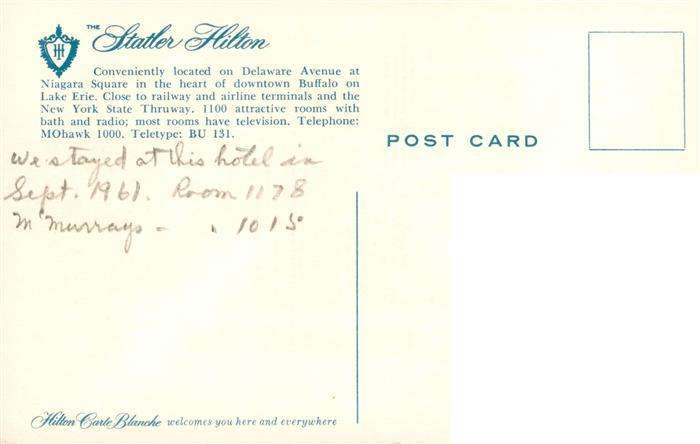 THE Statler Hilton
HH
Conveniently located on Delaware Avenue at
Niagara Square in the heart of downtown Buffalo on
Lake Erie. Close to railway and airline terminals and the
New York State Thruway. 1100 attractive rooms with
bath and radio; most rooms have television. Telephone:
MOhawk 1000. Teletype: BU 131.
POST CARD
We stayed at this hotel in
Sept. 1961. Room 1178
McMurrays - " 1015
Hilton Carte Blanche welcomes you here and everywhere